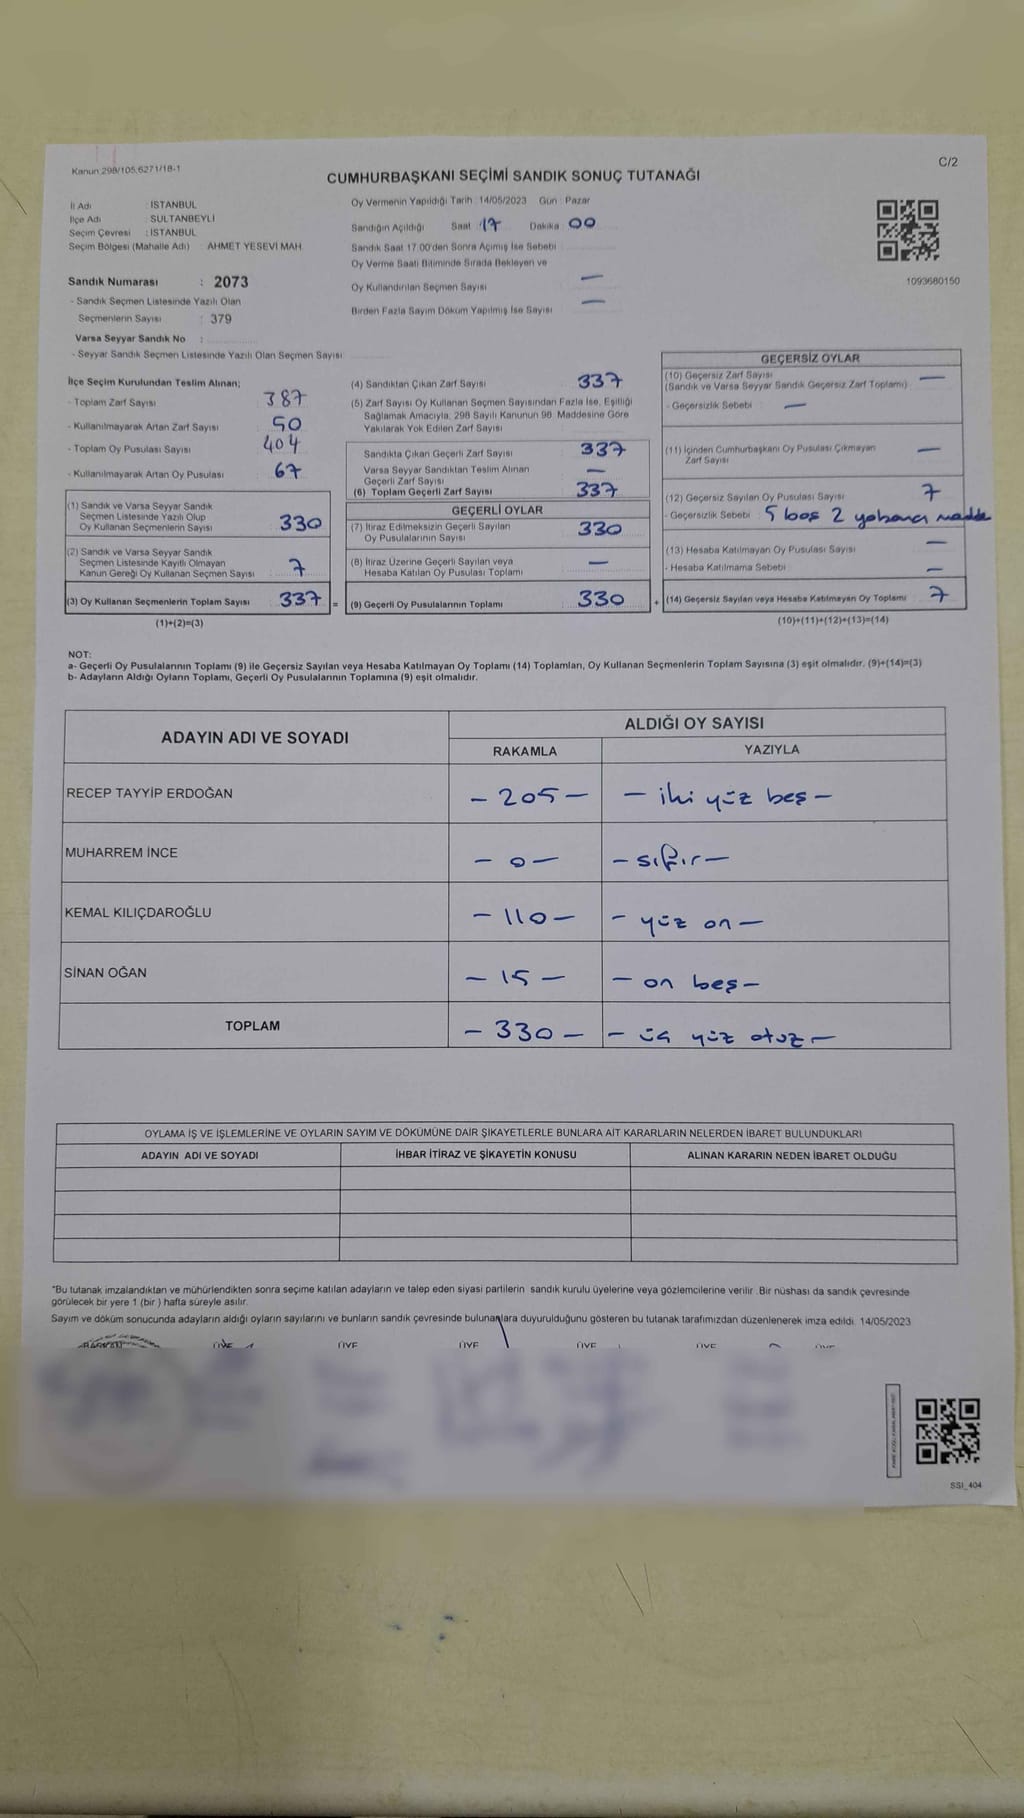 Kanun 298/105;6271/18-1
C/2
CUMHURBAŞKANI SEÇİMİ SANDIK SONUÇ TUTANAĞI
İl Adı : İSTANBUL
İlçe Adı : SULTANBEYLİ
Seçim Çevresi : İSTANBUL
Seçim Bölgesi (Mahalle Adı) : AHMET YESEVİ MAH.
Sandık Numarası : 2073
- Sandık Seçmen Listesinde Yazılı Olan
Seçmenlerin Sayısı : 379
Varsa Seyyar Sandık No :
- Seyyar Sandık Seçmen Listesinde Yazılı Olan Seçmen Sayısı
Oy Vermenin Yapıldığı Tarih : 14/05/2023 Gün : Pazar
Sandığın Açıldığı Saat 17 Dakika 00
Sandık Saat 17.00'den Sonra Açımış İse Sebebi
Oy Verme Saati Bitiminde Sırada Bekleyen ve
Oy Kullandırılan Seçmen Sayısı —
Birden Fazla Sayım Döküm Yapılmış İse Sayısı —
1093680150
İlçe Seçim Kurulundan Teslim Alınan;
- Toplam Zarf Sayısı 387
- Kullanılmayarak Artan Zarf Sayısı 50
- Toplam Oy Pusulası Sayısı 404
- Kullanılmayarak Artan Oy Pusulası 67
(1) Sandık ve Varsa Seyyar Sandık
Seçmen Listesinde Yazılı Olup
Oy Kullanan Seçmenlerin Sayısı 330
(2) Sandık ve Varsa Seyyar Sandık
Seçmen Listesinde Kayıtlı Olmayan
Kanun Gereği Oy Kullanan Seçmen Sayısı 7
(3) Oy Kullanan Seçmenlerin Toplam Sayısı 337 =
(1)+(2)=(3)
(4) Sandıktan Çıkan Zarf Sayısı 337
(5) Zarf Sayısı Oy Kullanan Seçmen Sayısından Fazla İse, Eşitliği
Sağlamak Amacıyla, 298 Sayılı Kanunun 98. Maddesine Göre
Yakılarak Yok Edilen Zarf Sayısı
Sandıkta Çıkan Geçerli Zarf Sayısı 337
Varsa Seyyar Sandıktan Teslim Alınan
Geçerli Zarf Sayısı —
(6) Toplam Geçerli Zarf Sayısı 337
GEÇERLİ OYLAR
(7) İtiraz Edilmeksizin Geçerli Sayılan
Oy Pusulalarının Sayısı 330
(8) İtiraz Üzerine Geçerli Sayılan veya
Hesaba Katılan Oy Pusulası Toplamı —
(9) Geçerli Oy Pusulalarının Toplamı 330 +
GEÇERSİZ OYLAR
(10) Geçersiz Zarf Sayısı
(Sandık ve Varsa Seyyar Sandık Geçersiz Zarf Toplamı) —
- Geçersizlik Sebebi —
(11) İçinden Cumhurbaşkanı Oy Pusulası Çıkmayan
Zarf Sayısı —
(12) Geçersiz Sayılan Oy Pusulası Sayısı 7
- Geçersizlik Sebebi 5 boş 2 yabancı madde
(13) Hesaba Katılmayan Oy Pusulası Sayısı —
- Hesaba Katılmama Sebebi —
(14) Geçersiz Sayılan veya Hesaba Katılmayan Oy Toplamı 7
(10)+(11)+(12)+(13)=(14)
NOT:
a- Geçerli Oy Pusulalarının Toplamı (9) ile Geçersiz Sayılan veya Hesaba Katılmayan Oy Toplamı (14) Toplamları, Oy Kullanan Seçmenlerin Toplam Sayısına (3) eşit olmalıdır. (9)+(14)=(3)
b- Adayların Aldığı Oyların Toplamı, Geçerli Oy Pusulalarının Toplamına (9) eşit olmalıdır.
ADAYIN ADI VE SOYADI
ALDIĞI OY SAYISI
RAKAMLA YAZIYLA
RECEP TAYYİP ERDOĞAN - 205 - - iki yüz beş -
MUHARREM İNCE - 0 - - sıfır -
KEMAL KILIÇDAROĞLU - 110 - - yüz on -
SİNAN OĞAN - 15 - - on beş -
TOPLAM - 330 - - üç yüz otuz -
OYLAMA İŞ VE İŞLEMLERİNE VE OYLARIN SAYIM VE DÖKÜMÜNE DAİR ŞİKAYETLERLE BUNLARA AİT KARARLARIN NELERDEN İBARET BULUNDUKLARI
ADAYIN ADI VE SOYADI İHBAR İTİRAZ VE ŞİKAYETİN KONUSU ALINAN KARARIN NEDEN İBARET OLDUĞU
*Bu tutanak imzalandıktan ve mühürlendikten sonra seçime katılan adayların ve talep eden siyasi partilerin sandık kurulu üyelerine veya gözlemcilerine verilir. Bir nüshası da sandık çevresinde
görülecek bir yere 1 (bir ) hafta süreyle asılır.
Sayım ve döküm sonucunda adayların aldığı oyların sayılarını ve bunların sandık çevresinde bulunanlara duyurulduğunu gösteren bu tutanak tarafımızdan düzenlenerek imza edildi. 14/05/2023
ÜYE ÜYE ÜYE ÜYE ÜYE ÜYE
SSI_404